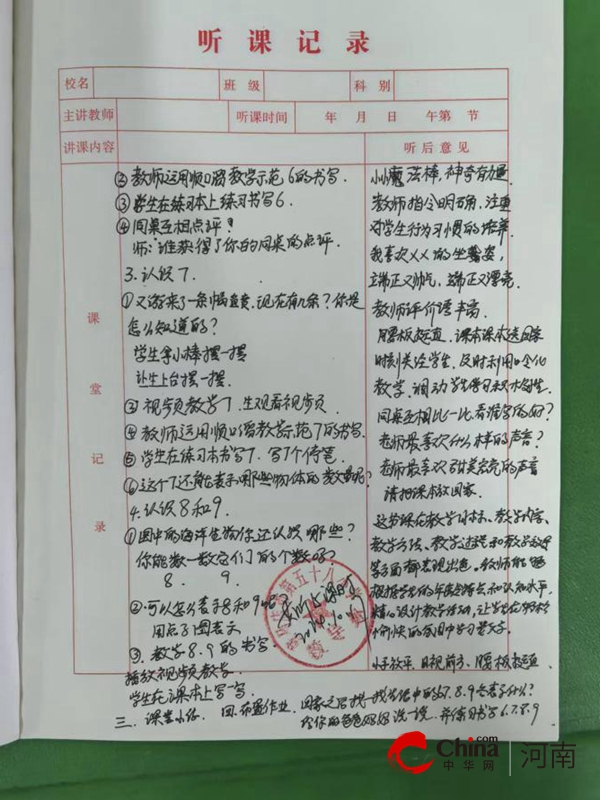 听课记录
校名 班级 科别
主讲教师 听课时间 年 月 日 午第 节
讲课内容 听后意见
课堂记录
②教师运用顺口溜教学示范6的书写.
③学生在练习本上练习书写6.
④同桌互相点评?
师:谁获得了你的同桌的点评.
3.认识7.
①又游来了一条,现在有几条?你是
怎么知道的?
学生拿小棒摆一摆
让生上台摆一摆.
③视频教学7,生观看视频.
④教师运用顺口溜教学示范7的书写.
⑤学生在练习本书写7.写7个
⑥这个7还能表示哪些物体的数量呢?
4.认识8和9.
①图中的海洋生物你还认识哪些?
你能数一数它们的个数吗?
8. 9.
②可以怎么表示8和9呢?
用点子图表示
③.教学8.9的书写
播放视频教学
学生在课本上写一写.
三.课堂小结. 四.布置作业.
回家之后找一找生活中的6.7.8.9
给你的爸爸妈妈说一说,并练习书写6.7.8.9
小小魔法棒,神奇有
教师指令明确,注重
对学生行为习惯的培养
我喜欢XX的坐姿,
端正又帅气,端正又漂亮
教师评价语丰富
腰板挺直,课本课本送回家
时刻关注学生,及时利用口令化
教学,调动学生学习积极性.
同桌互相比一比,看谁写的好?
老师最喜欢什么样的声音?
老师最喜欢甜美宏亮的声音
请把课本放回家.
这节课在教学目标、教学内容、
教学方法、教学过程和教学
等方面都表现出色,教师能够
根据学生的年龄特点和认知水平,
精心设计教学活动,让学生在轻松
愉快的氛围中学习数学.
小手放平,目视前方,腰板挺直
第五十八
China.com
中华网
河南